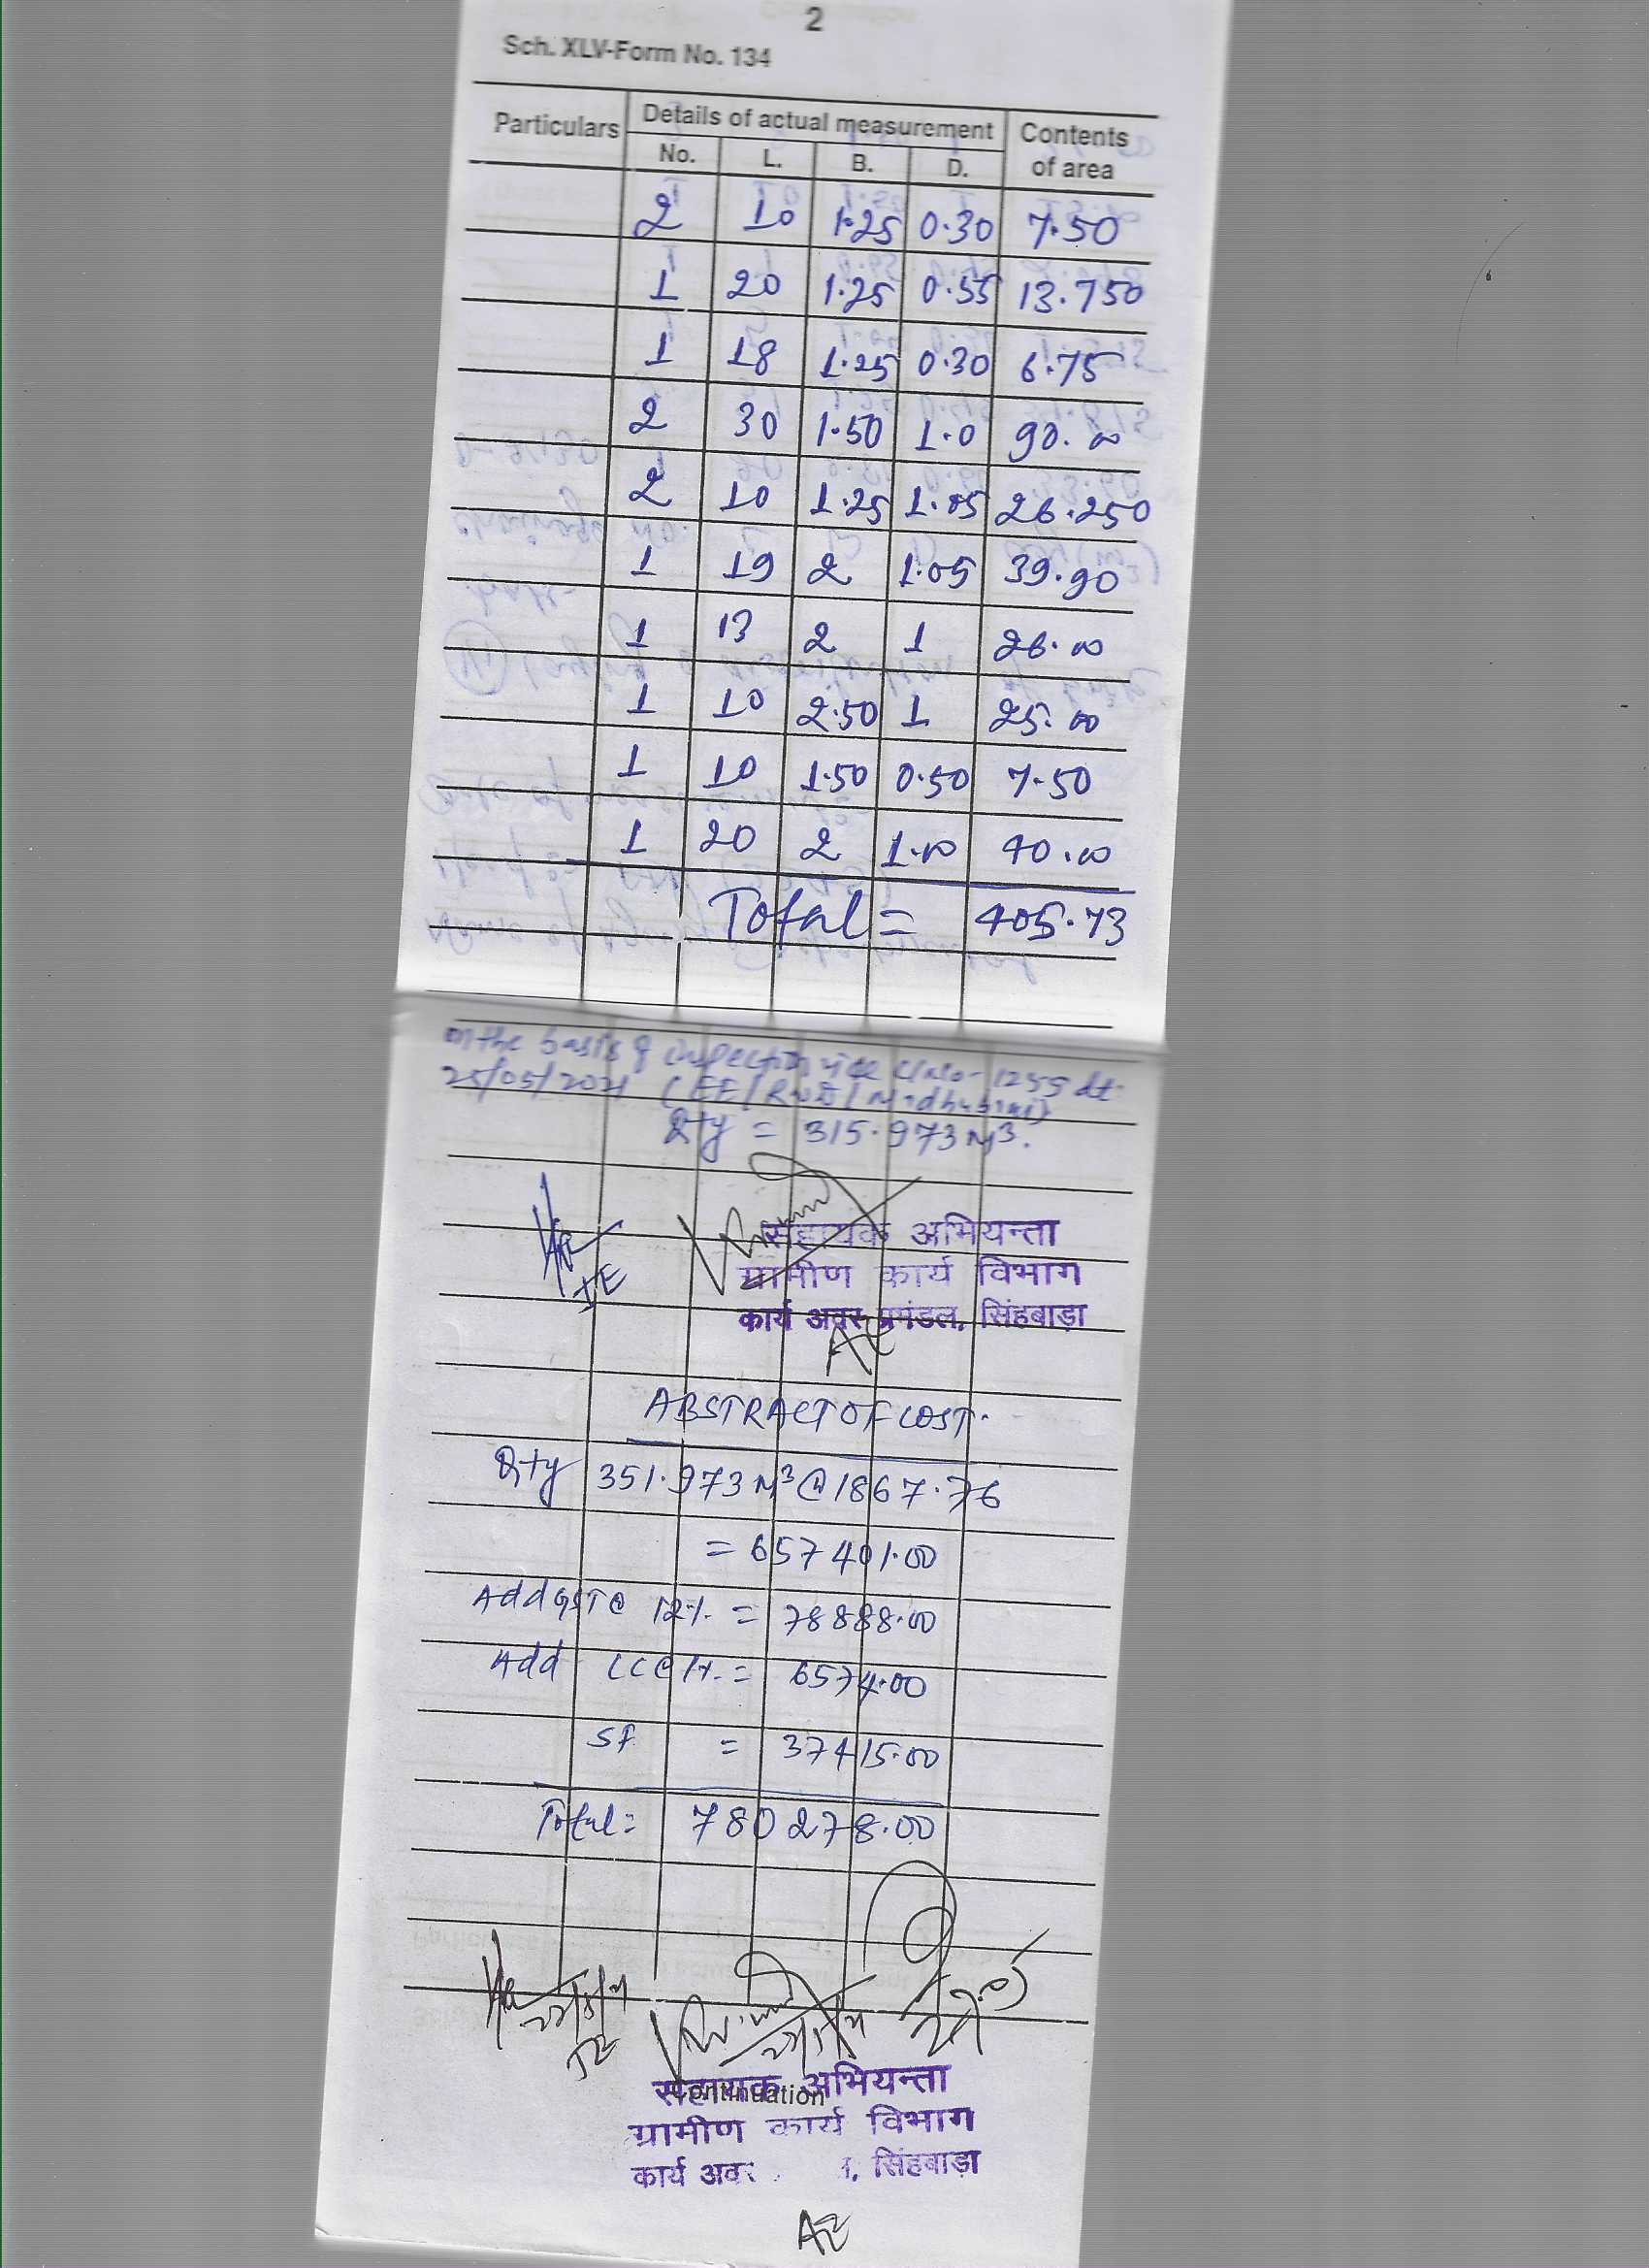 2
Sch. XLV-Form No. 134
Particulars Details of actual measurement Contents of area
No. L. B. D.
2 10 1.25 0.30 7.50
1 20 1.25 0.55 13.750
1 18 1.25 0.30 6.75
2 30 1.50 1.0 90.00
2 10 1.25 1.05 26.250
1 19 2 1.05 39.90
1 13 2 1 26.00
1 10 2.50 1 25.00
1 10 1.50 0.50 7.50
1 20 2 1.00 40.00
Total = 405.73
on the basis of inspection vide 1255 dt.
25/05/2021 (EE/RWD/Madhubani)
Qty = 315.973 M³.
सहायक अभियन्ता
JE
ग्रामीण कार्य विभाग
कार्य अवर प्रमंडल, सिंहबाड़ा
AE
ABSTRACT OF COST.
Qty 351.973 M³ @ 1867.76
= 657401.00
Add GST @ 12%. = 78888.00
Add LC @ 1%. = 6574.00
SF = 37415.00
Total = 780278.00
JE
सहायक अभियन्ता
Continuation
ग्रामीण कार्य विभाग
कार्य अवर सिंहबाड़ा
AE